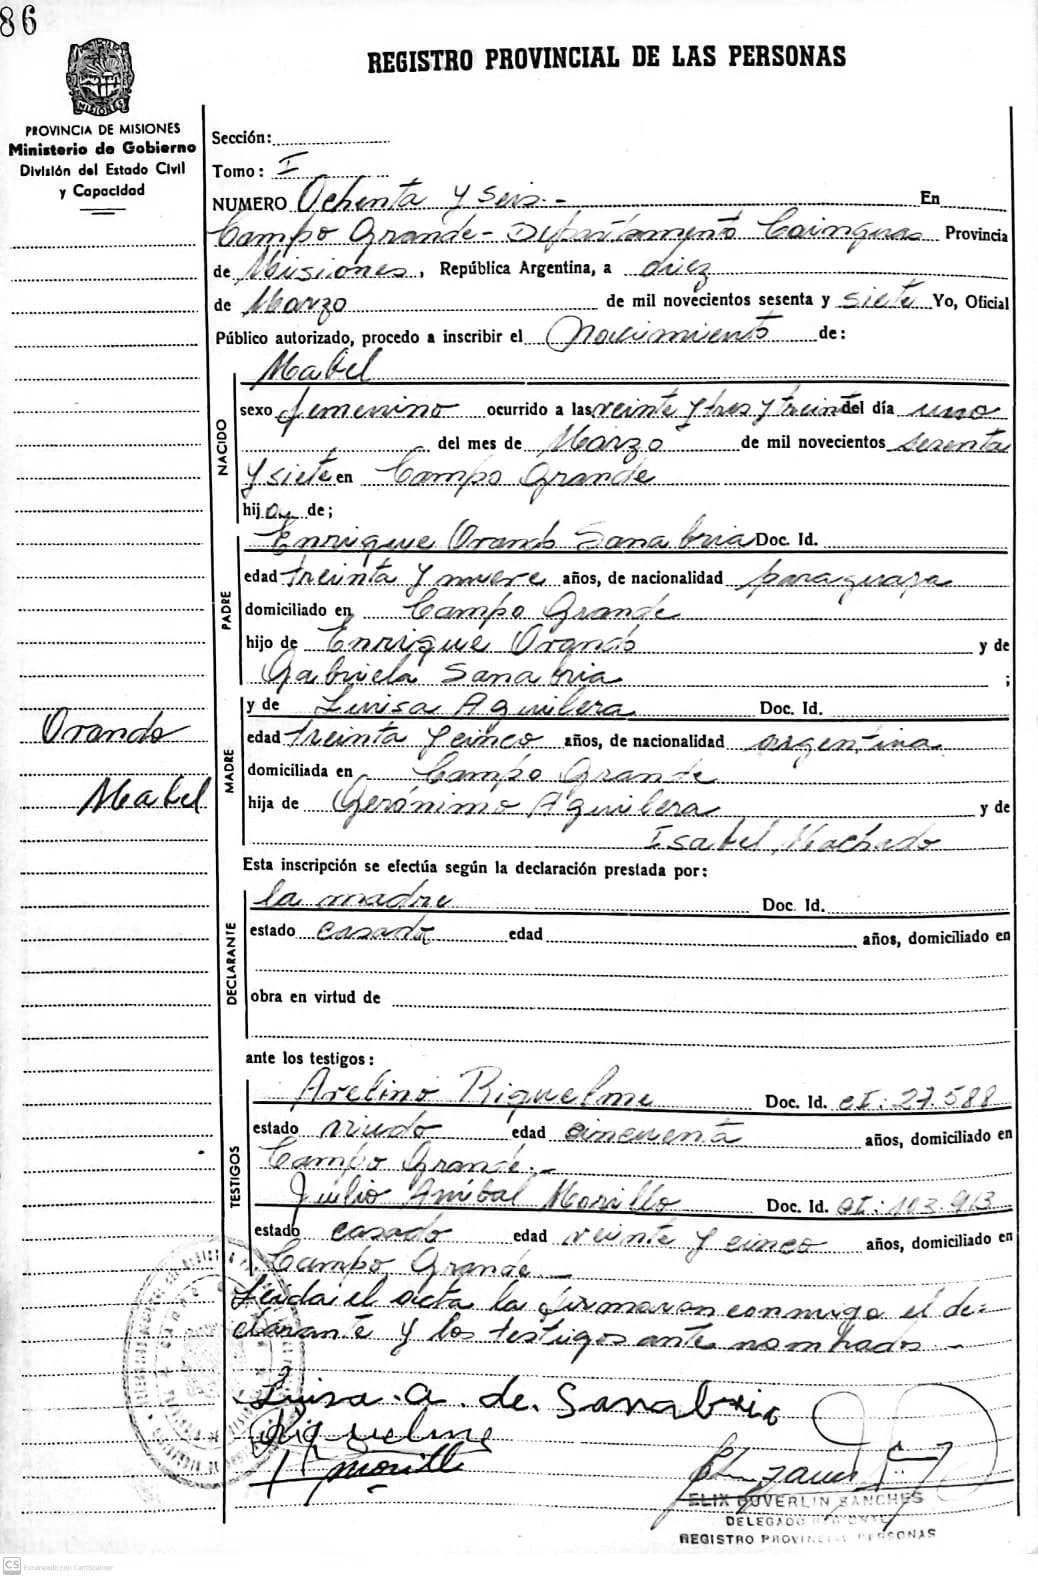 86
REGISTRO PROVINCIAL DE LAS PERSONAS
MISIONES
PROVINCIA DE MISIONES
Ministerio de Gobierno
División del Estado Civil
y Capacidad
Sección:
Tomo: I
NUMERO Ochenta y seis.- En
Campo Grande - Departamento Cainguas Provincia
de Misiones, República Argentina, a diez
de Marzo de mil novecientos sesenta y siete Yo, Oficial
Público autorizado, procedo a inscribir el Nacimiento de:
NACIDO
Mabel
sexo femenino ocurrido a las veinte y tres y treinta del día uno
del mes de Marzo de mil novecientos sesenta
y siete en Campo Grande
hija de;
PADRE
Enrique Orando Sanabria Doc. Id.
edad treinta y nueve años, de nacionalidad paraguaya
domiciliado en Campo Grande
hijo de Enrique Orando y de
Gabriela Sanabria ;
MADRE
y de Luisa Aguilera Doc. Id.
edad treinta y cinco años, de nacionalidad argentina
domiciliada en Campo Grande
hija de Gerónimo Aguilera y de
Isabel Machado
Orando
Mabel
Esta inscripción se efectúa según la declaración prestada por:
DECLARANTE
la madre Doc. Id.
estado casada edad años, domiciliado en
obra en virtud de
ante los testigos:
TESTIGOS
Avelino Riquelme Doc. Id. CI: 27.588
estado viudo edad cincuenta años, domiciliado en
Campo Grande.-
Julio Anibal Morillo Doc. Id. CI: 103.913
estado casado edad veinte y cinco años, domiciliado en
Campo Grande -
Leida el acta la firmaron conmigo el de-
clarante y los testigos ante nombrados -
Luisa. A. de. Sanabria
Riquelme
Morillo
ELIX DUVERLIN SANCHES
DELEGADO REGIONAL
REGISTRO PROVINCIAL PERSONAS
CS Escaneado con CamScanner